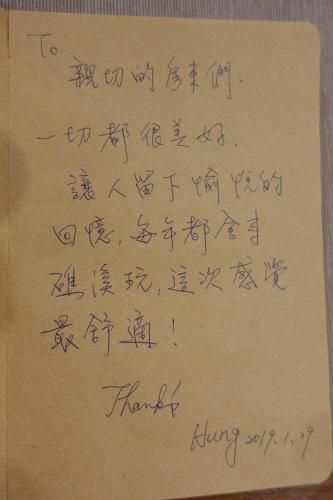 To
親切的房東們:
一切都很美好.
讓人留下愉悅的
回憶,每年都會來
礁溪玩,這次感覺
最舒適!
Thanks
Hung 2019.1.29